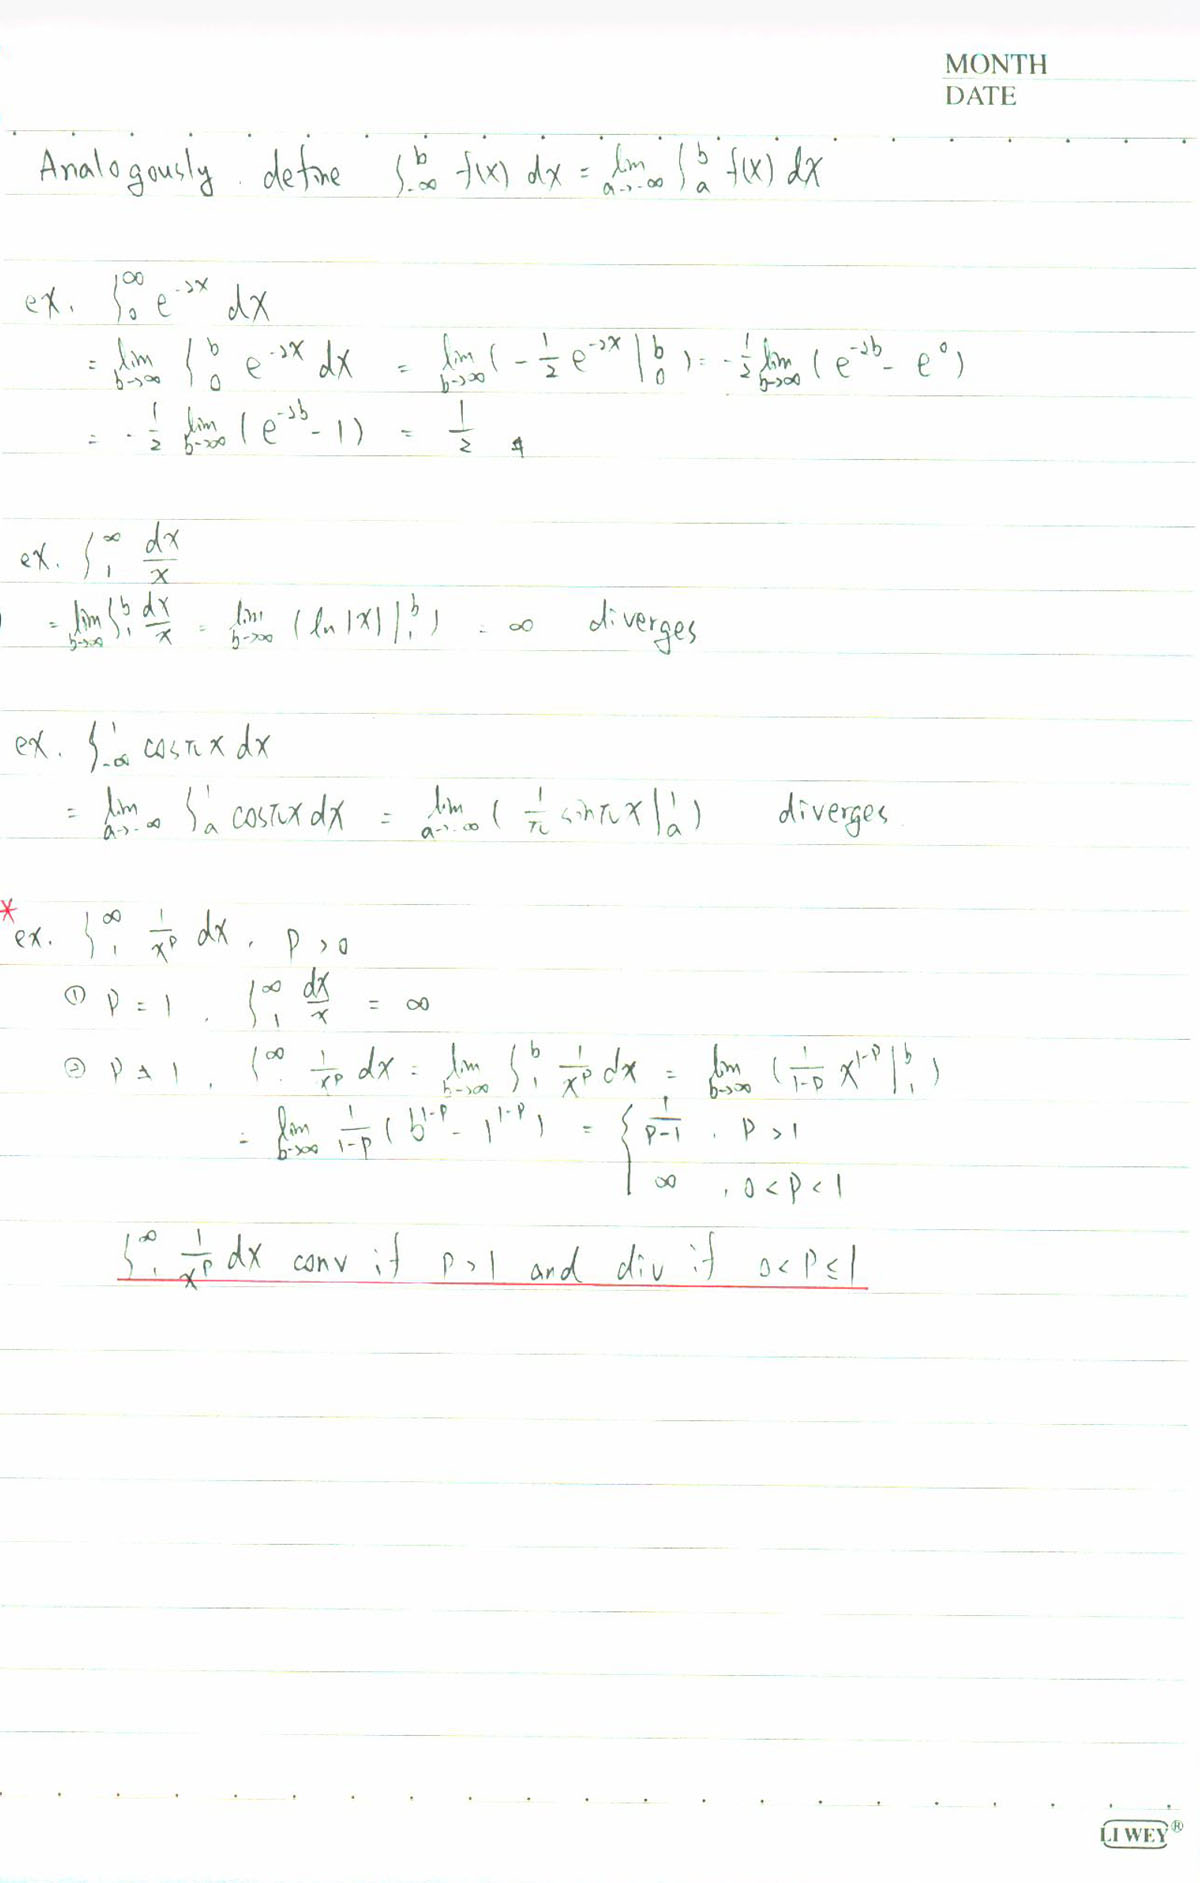 MONTH
DATE
Analogously. define ∫_{-∞}^{b} f(x) dx = lim_{a→-∞} ∫_{a}^{b} f(x) dx
ex. ∫_{0}^{∞} e^{-2x} dx
= lim_{b→∞} ∫_{0}^{b} e^{-2x} dx = lim_{b→∞} (-1/2 e^{-2x} |_{0}^{b}) = -1/2 lim_{b→∞} (e^{-2b} - e^{0})
= -1/2 lim_{b→∞} (e^{-2b} - 1) = 1/2
ex. ∫_{1}^{∞} dx/x
= lim_{b→∞} ∫_{1}^{b} dx/x = lim_{b→∞} (ln|x| |_{1}^{b}) = ∞ diverges
ex. ∫_{-∞}^{1} cosπx dx
= lim_{a→-∞} ∫_{a}^{1} cosπx dx = lim_{a→-∞} (1/π sinπx |_{a}^{1}) diverges.
* ex. ∫_{1}^{∞} 1/x^p dx, p > 0
① p = 1, ∫_{1}^{∞} dx/x = ∞
② p ≠ 1, ∫_{1}^{∞} 1/x^p dx = lim_{b→∞} ∫_{1}^{b} 1/x^p dx = lim_{b→∞} (1/(1-p) x^{1-p} |_{1}^{b})
= lim_{b→∞} 1/(1-p) (b^{1-p} - 1^{1-p}) = { 1/(p-1), p > 1
∞, 0 < p < 1
∫_{1}^{∞} 1/x^p dx conv if p > 1 and div if 0 < p ≤ 1
LI WEY®